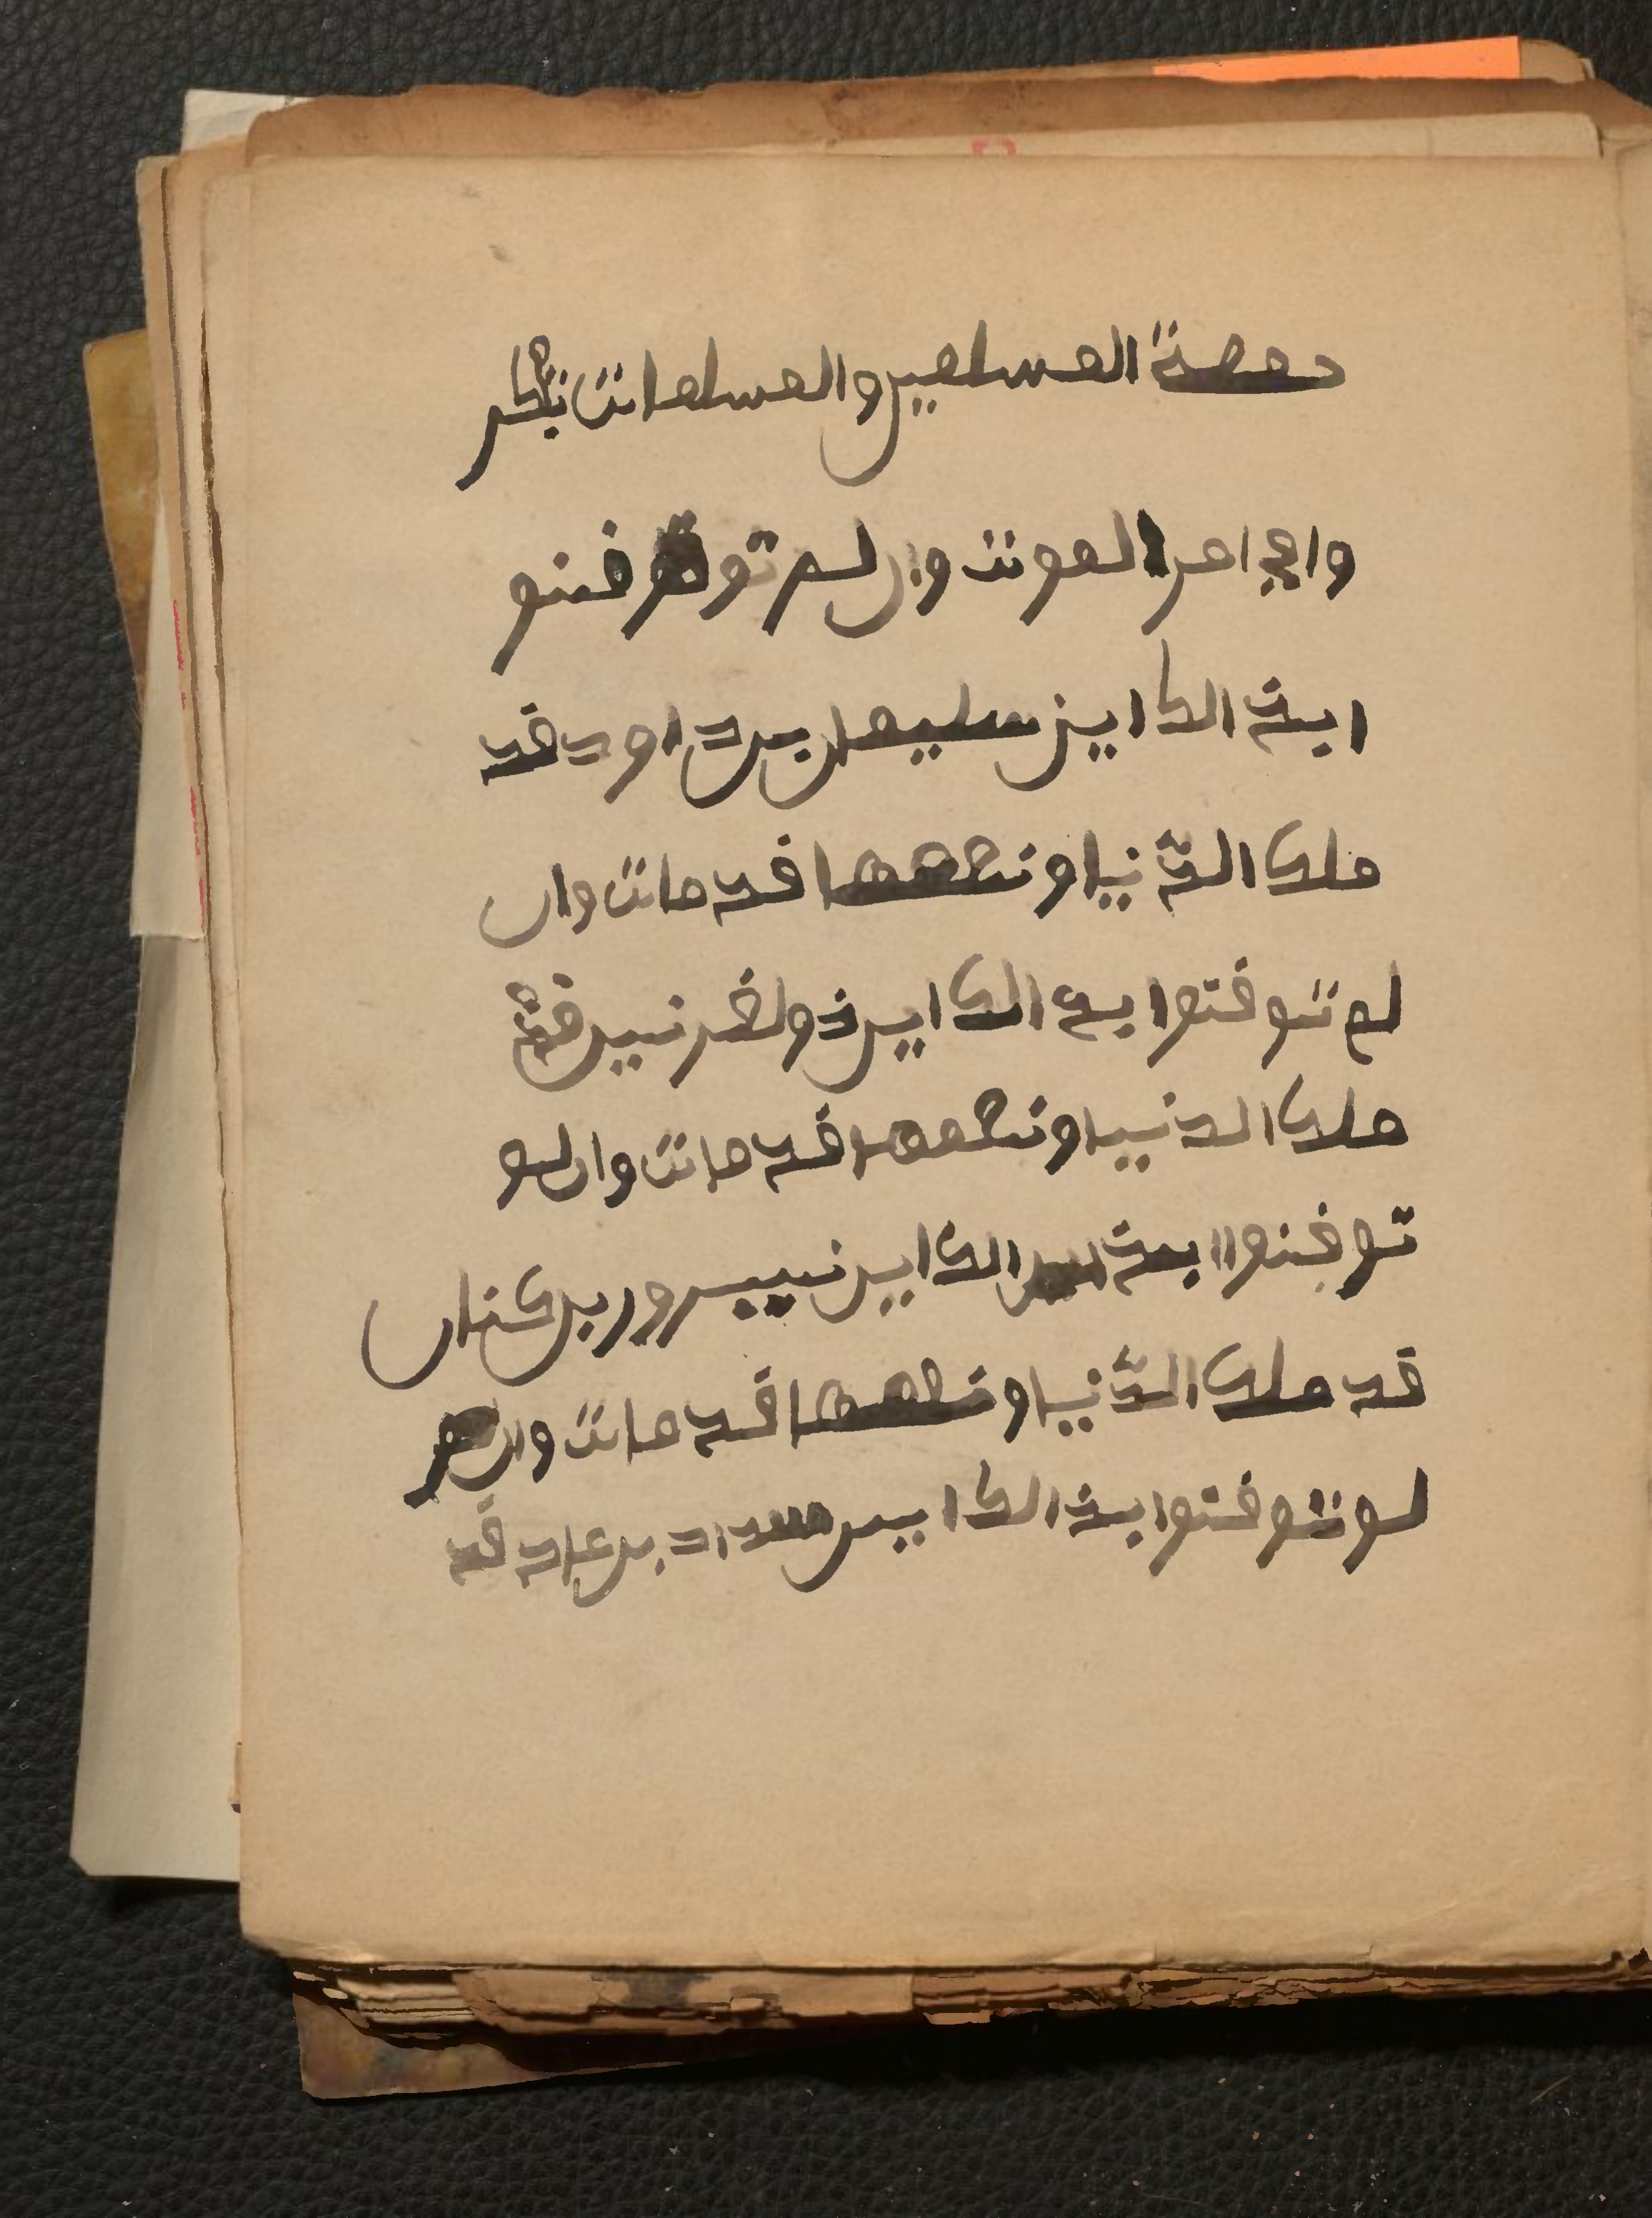 جمعة المسلمين والمسلمات تفكر
وا في امر الموت وان لم توقنو
ا بذالك اين سليمان بن داود قد
ملك الدنيا ونعمها قد مات وان
لم توقنوا بذالك اين ذولقرنين قد
ملك الدنيا ونعمها قد مات وان لم
توقنوا بذالك اين نيمرور بن كنان
قد ملك الدنيا ونعمها قد مات وان
لم توقنوا بذالك اين شداد بن عاد قد